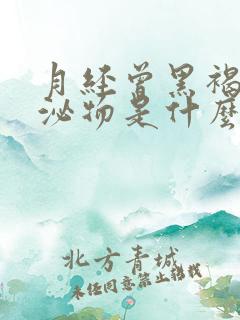 月經曾黑褐
泌物是什麼
北方青城
未经同意禁止转载